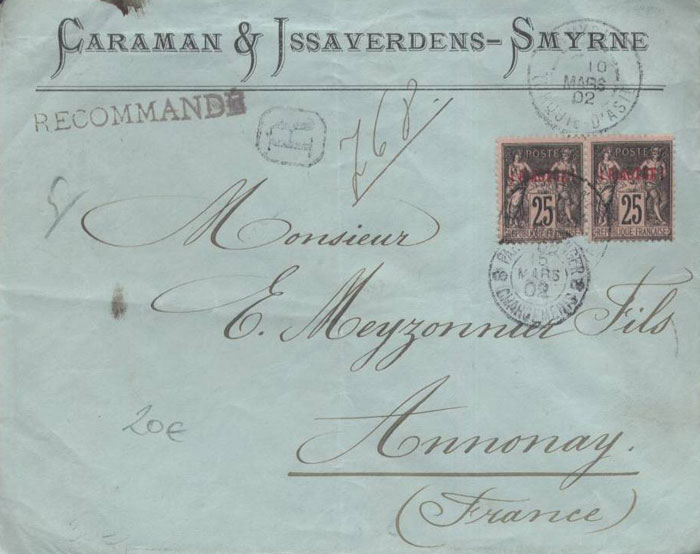 CARAMAN & ISSAVERDENS–SMYRNE
10
MARS
02
RECOMMANDÉ
R
768.
POSTE POSTE
25 25
REPUBLIQUE FRANÇAISE REPUBLIQUE FRANÇAISE
15
MARS
02
CHARGEMENTS
Monsieur
E. Meyzonnier Fils
Annonay.
(France)
20€